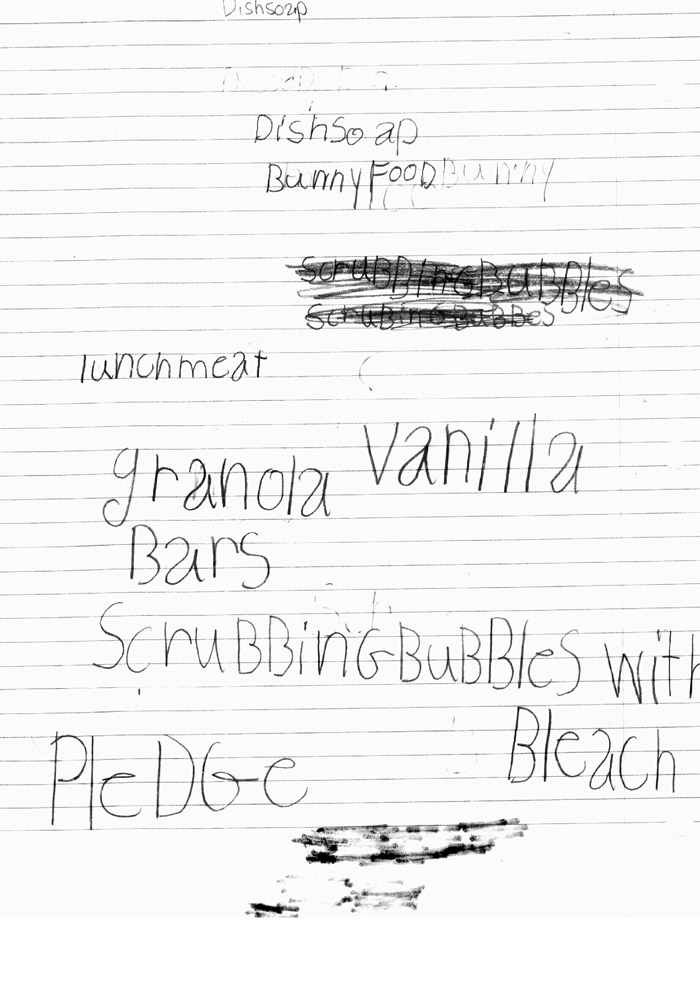 Dishsoap
DishSoap
BunnyFooD Bunny
ScruBBinGBuBBles
ScruBinGBuBBes
lunchmeat
granola vanilla
Bars
ScruBBinGBuBBles with
PleDGe Bleach